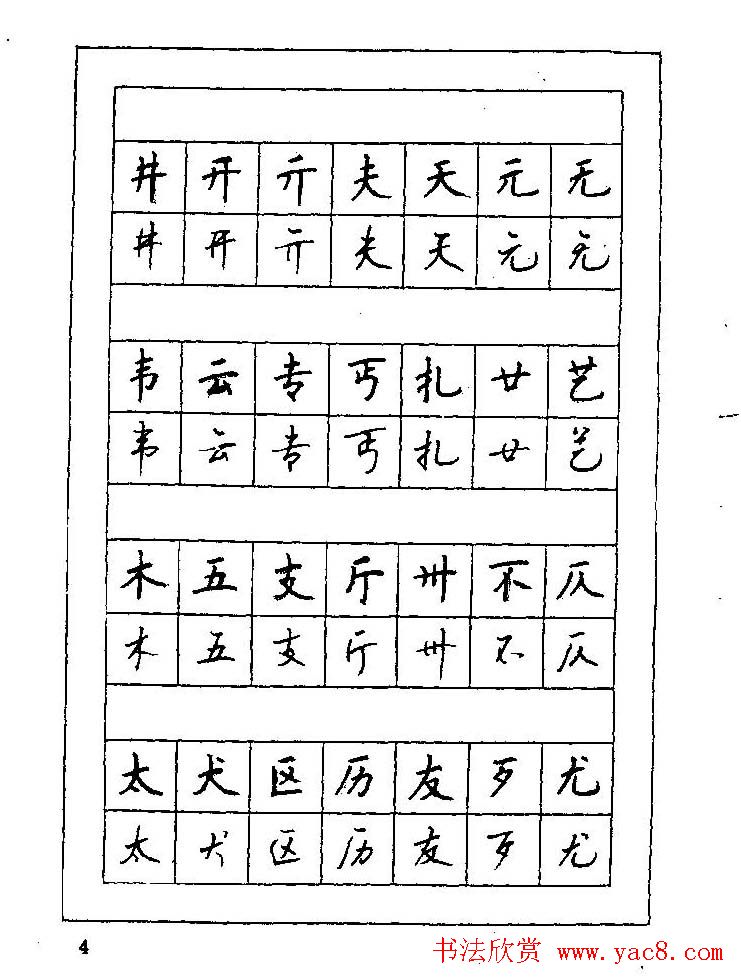 井 开 亓 夫 天 元 无
井 开 亓 夫 天 元 无
韦 云 专 丐 扎 廿 艺
韦 云 专 丐 扎 廿 艺
木 五 支 厅 卅 不 仄
木 五 支 厅 卅 不 仄
太 犬 区 历 友 歹 尤
太 犬 区 历 友 歹 尤
4
书法欣赏 www.yac8.com